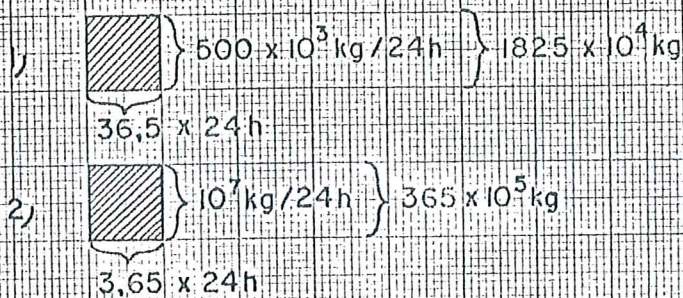 1) 500 x 10³ kg/24h 1825 x 10⁴ kg
36,5 x 24h
2) 10⁷ kg/24h 365 x 10⁵ kg
3,65 x 24h